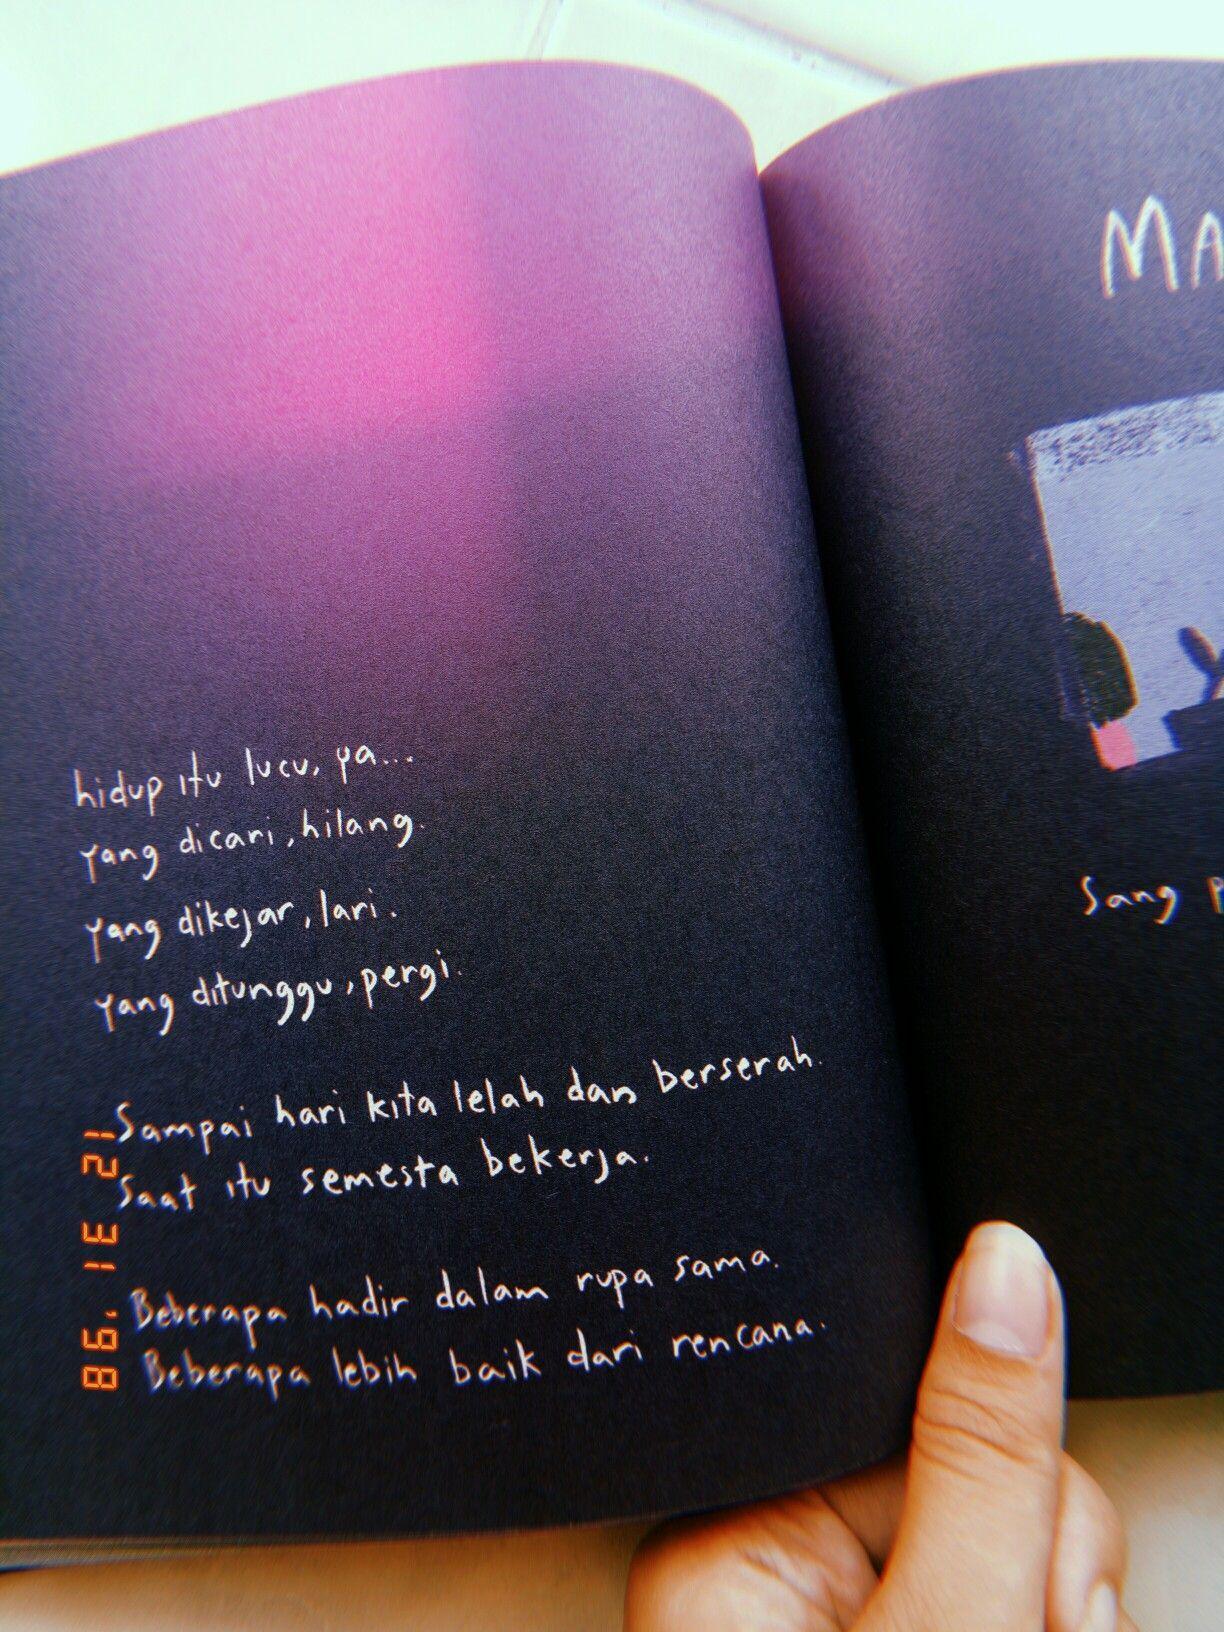 hidup itu lucu, ya...
yang dicari, hilang.
yang dikejar, lari.
yang ditunggu, pergi.
Sampai hari kita lelah dan berserah.
Saat itu semesta bekerja.
Beberapa hadir dalam rupa sama.
Beberapa lebih baik dari rencana.
MA
Sang P
12 31 '98